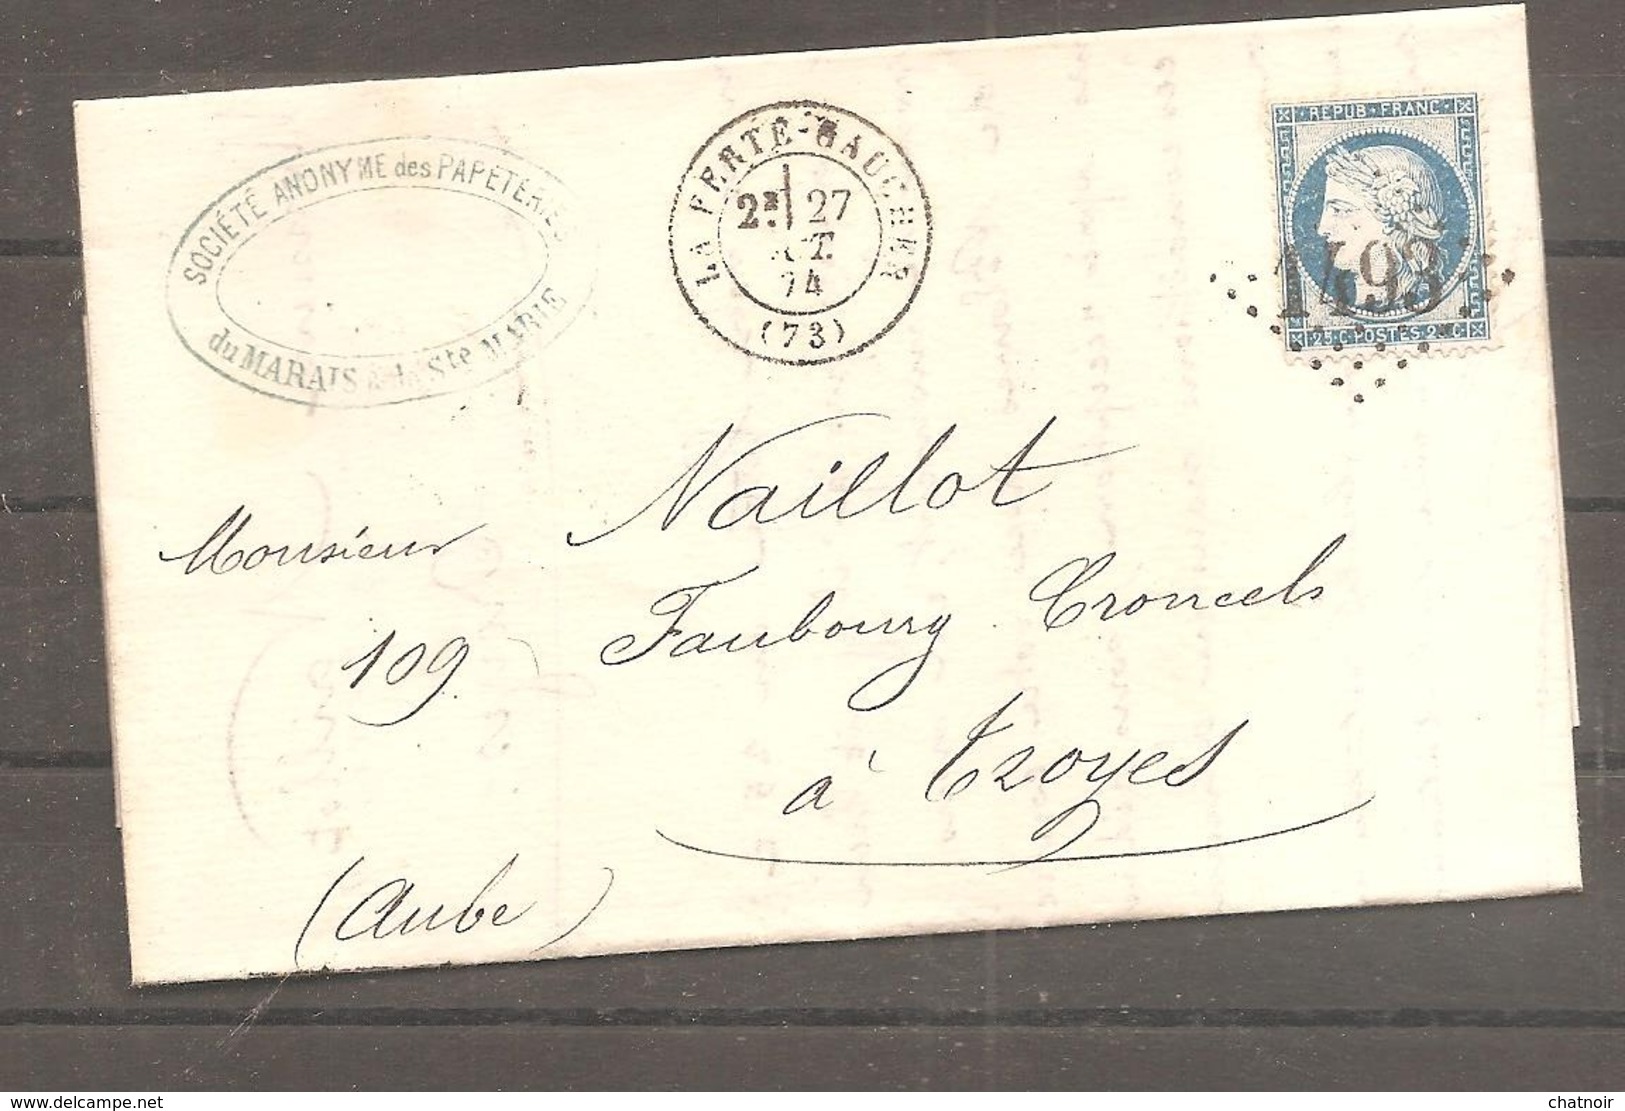 SOCIÉTÉ ANONYME des PAPETERIES
du MARAIS & de Ste MARIE
LA FERTE-GAUCHER
2E 27
CT.
74
(73)
REPUB FRANC
1493
25 C POSTES 2 C
Monsieur Naillot
109 Faubourg Croncels
à Troyes
(Aube)
www.delcampe.net
chatnoir